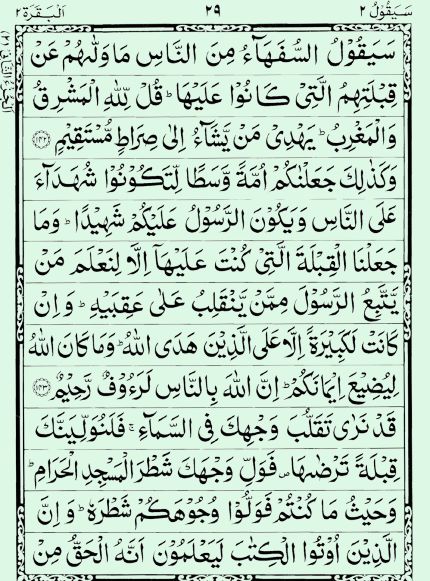 سَيَقُوْلُ ٢ ٢٩ اَلْبَقَرَة ٢
سَيَقُوْلُ السُّفَهَآءُ مِنَ النَّاسِ مَا وَلّٰىهُمْ عَنْ
قِبْلَتِهِمُ الَّتِىْ كَانُوْا عَلَيْهَا ؕ قُلْ لِّلّٰهِ الْمَشْرِقُ
وَالْمَغْرِبُ ؕ يَهْدِىْ مَنْ يَّشَآءُ اِلٰى صِرَاطٍ مُّسْتَقِيْمٍ ﴿۱۴۲﴾
وَكَذٰلِكَ جَعَلْنٰكُمْ اُمَّةً وَّسَطًا لِّتَكُوْنُوْا شُهَدَآءَ
عَلَى النَّاسِ وَيَكُوْنَ الرَّسُوْلُ عَلَيْكُمْ شَهِيْدًا ؕ وَمَا
جَعَلْنَا الْقِبْلَةَ الَّتِىْ كُنْتَ عَلَيْهَآ اِلَّا لِنَعْلَمَ مَنْ
يَّتَّبِعُ الرَّسُوْلَ مِمَّنْ يَّنْقَلِبُ عَلٰى عَقِبَيْهِ ؕ وَاِنْ
كَانَتْ لَكَبِيْرَةً اِلَّا عَلَى الَّذِيْنَ هَدَى اللّٰهُ ؕ وَمَا كَانَ اللّٰهُ
لِيُضِيْعَ اِيْمَانَكُمْ ؕ اِنَّ اللّٰهَ بِالنَّاسِ لَرَءُوْفٌ رَّحِيْمٌ ﴿۱۴۳﴾
قَدْ نَرٰى تَقَلُّبَ وَجْهِكَ فِى السَّمَآءِ ۚ فَلَنُوَلِّيَنَّكَ
قِبْلَةً تَرْضٰىهَا ۪ فَوَلِّ وَجْهَكَ شَطْرَ الْمَسْجِدِ الْحَرَامِ ؕ
وَحَيْثُ مَا كُنْتُمْ فَوَلُّوْا وُجُوْهَكُمْ شَطْرَهٗ ؕ وَاِنَّ
الَّذِيْنَ اُوْتُوا الْكِتٰبَ لَيَعْلَمُوْنَ اَنَّهُ الْحَقُّ مِنْ